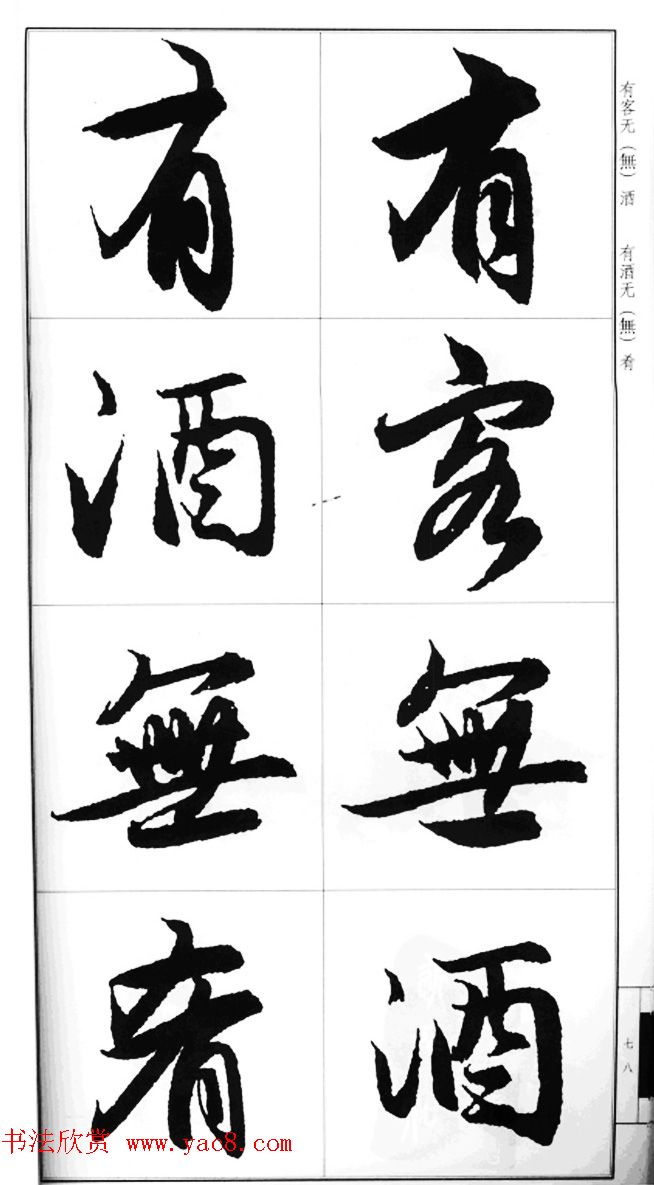 有客无（無）酒　有酒无（無）肴
有客無酒
有酒無肴
七八
书法欣赏 www.yac8.com